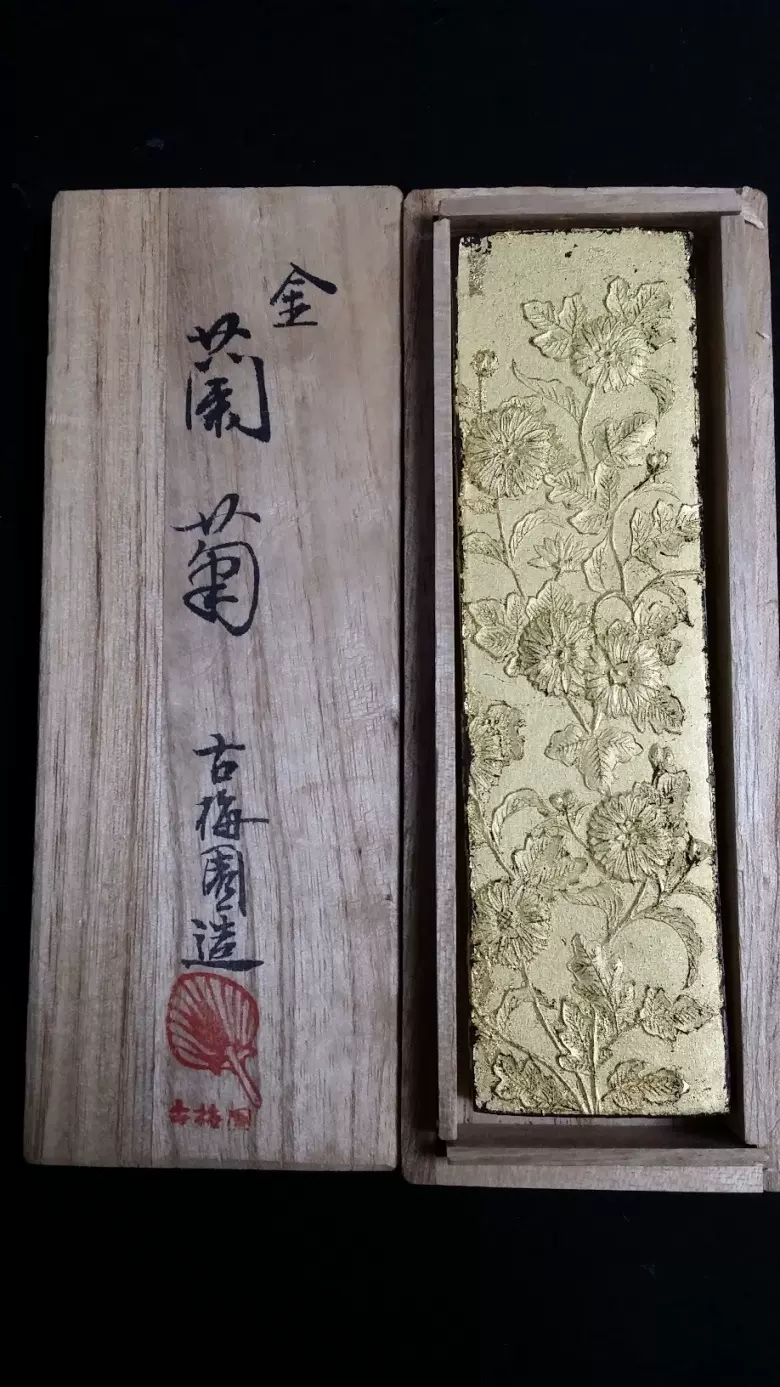 金
蘭菊
古梅園造
古梅園